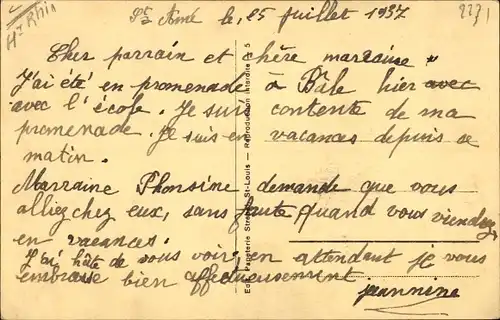 Ht Rhin
2231
St Amé le, 25 juillet 1937
Cher parrain et chère marraine
J'ai été en promenade à Bâle hier avec
avec l'école. Je suis contente de ma
promenade. Je suis en vacances depuis ce
matin.
Marraine Phonsine demande que vous
alliez chez eux, sans faute quand vous viendrez
en vacances.
J'ai hâte de vous voir, en attendant je vous
embrasse bien affectueusement
jeannine
Edit. Papeterie St-Louis — Reproduction interdite 5